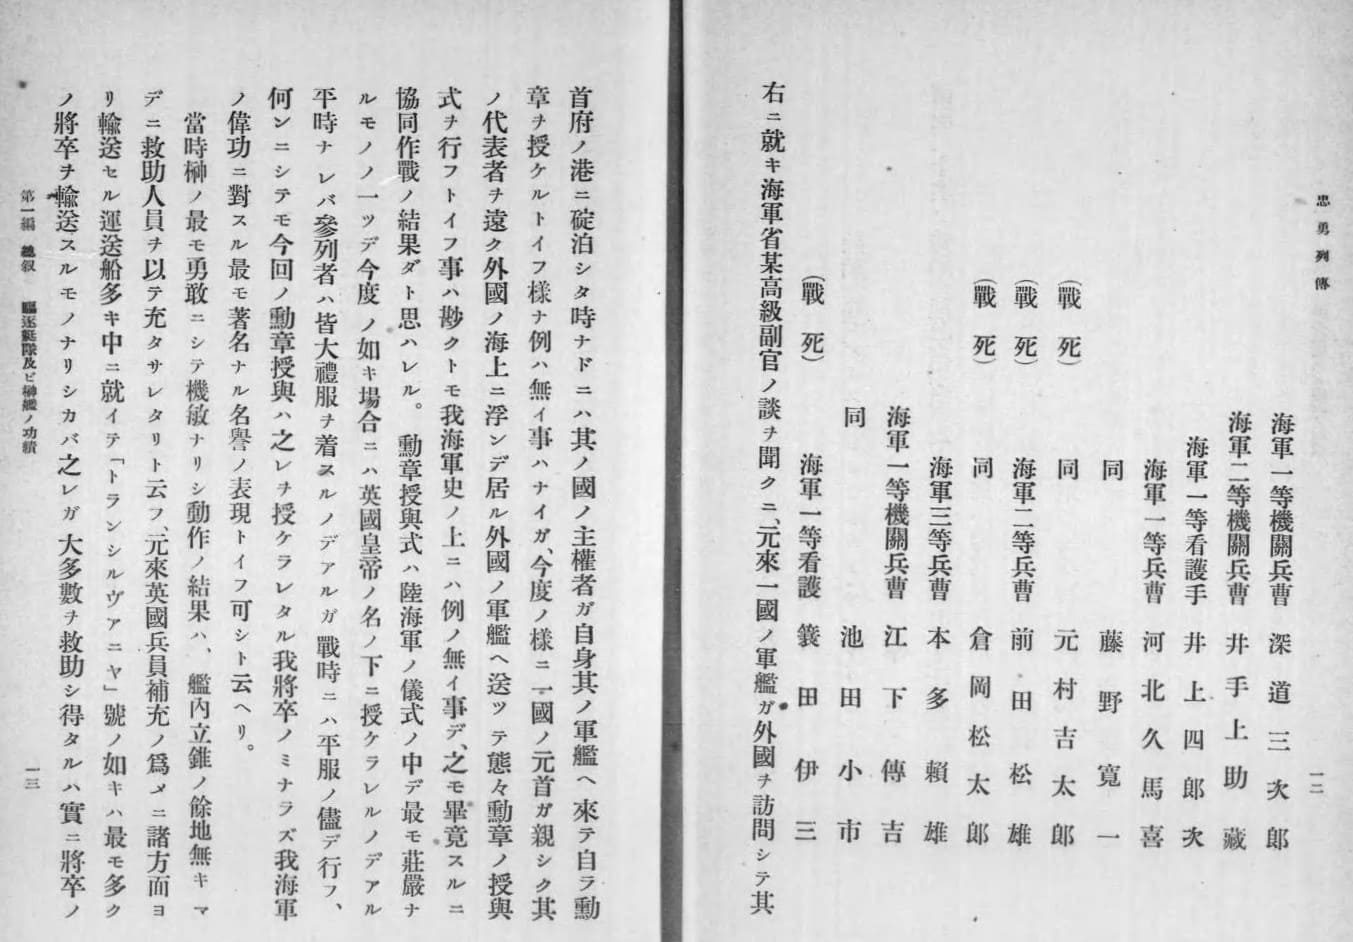 忠勇列傳
一二
海軍一等機關兵曹 深道三次郎
海軍二等機關兵曹 井手上助藏
海軍一等看護手 井上四郎次
海軍一等兵曹 河北久馬喜
同 藤野寛一
(戰死) 同 元村吉太郎
(戰死) 海軍二等兵曹 前田松雄
(戰死) 同 倉岡松太郎
海軍三等兵曹 本多賴雄
海軍一等機關兵曹 江下傳吉
同 池田小市
(戰死) 海軍一等看護 簑田伊三
右ニ就キ海軍省某高級副官ノ談ヲ聞クニ、元來一國ノ軍艦ガ外國ヲ訪問シテ其
首府ノ港ニ碇泊シタ時ナドニハ其ノ國ノ主權者ガ自身其ノ軍艦ヘ來テ自ラ勳
章ヲ授ケルトイフ樣ナ例ハ無イ事ハナイガ、今度ノ樣ニ一國ノ元首ガ親シク其
ノ代表者ヲ遠ク外國ノ海上ニ浮ンデ居ル外國ノ軍艦ヘ送ツテ態々勳章ノ授與
式ヲ行フトイフ事ハ尠クトモ我海軍史ノ上ニハ例ノ無イ事デ、之モ畢竟スルニ
協同作戰ノ結果ダト思ハレル。勳章授與式ハ陸海軍ノ儀式ノ中デ最モ莊嚴ナ
ルモノノ一ツデ今度ノ如キ場合ニハ英國皇帝ノ名ノ下ニ授ケラレルノデアル
平時ナレバ參列者ハ皆大禮服ヲ着スルノデアルガ戰時ニハ平服ノ儘デ行フ、
何ンニシテモ今回ノ勳章授與ハ之レヲ授ケラレタル我將卒ノミナラズ我海軍
ノ偉功ニ對スル最モ著名ナル名譽ノ表現トイフ可シト云ヘリ。
當時榊ノ最モ勇敢ニシテ機敏ナリシ動作ノ結果ハ、艦內立錐ノ餘地無キマ
デニ救助人員ヲ以テ充タサレタリト云フ、元來英國兵員補充ノ爲メニ諸方面ヨ
リ輸送セル運送船多キ中ニ就イテ「トランシルヴアニヤ」號ノ如キハ最モ多ク
ノ將卒ヲ輸送スルモノナリシカバ之レガ大多數ヲ救助シ得タルハ實ニ將卒ノ
第一編 總叙 驅逐艇隊及ビ榊艦ノ功績
一三